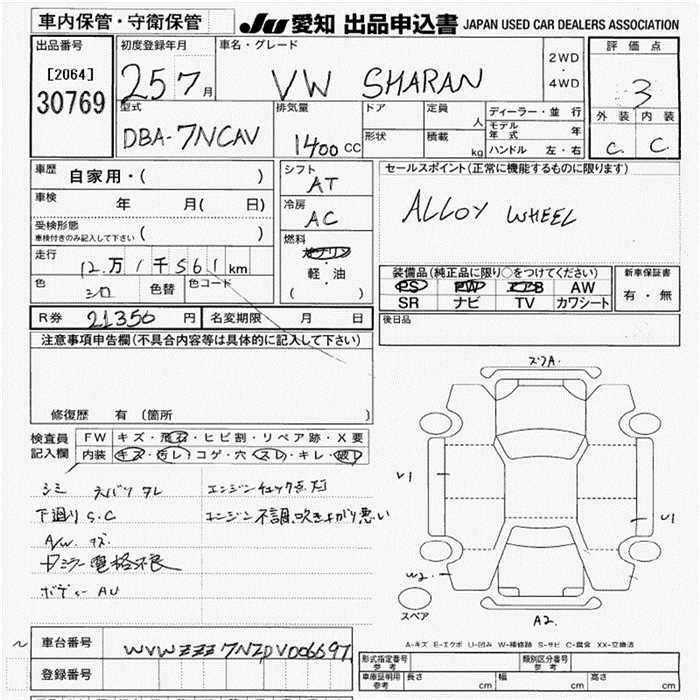 車内保管・守衛保管 JU 愛知 出品申込書 JAPAN USED CAR DEALERS ASSOCIATION
出品番号 初度登録年月 車名・グレード 2WD・4WD 評価点
[2064] 30769 25 7月 VW SHARAN 3
型式 排気量 ドア 定員 人 ディーラー・並行 外装 内装
DBA-7NCAV 1400 CC 形状 積載 kg モデル年式 年 C. C.
ハンドル 左・右
車歴 自家用・( ) シフト AT セールスポイント(正常に機能するものに限ります)
車検 年 月( 日) 冷房 AC ALLOY WHEEL
受検形態 車検付きのみ記入して下さい ( )
走行 12万1千561km 燃料 ガソリン・軽・油 ( )
装備品(純正品に限り○をつけてください) 新車保証書
色 シロ 色替 色コード PS PW エアB AW 有・無
SR ナビ TV カワシート
R券 21350円 名変期限 月 日 後日品
注意事項申告欄(不具合内容等は具体的に記入して下さい)
修復歴 有 (箇所 )
検査員記入欄 FW キズ・飛石・ヒビ割・リペア跡・X要
内装 キズ・汚レ・コゲ・穴・スレ・キレ・破レ
シミ ネバリ タレ エンジンチェック点灯
下廻り S.C エンジン不調、吹き上がり悪い
A/W キズ
ドアミラー電格不良
ボディー AU
スフA.
U1
U1
W2.
A2.
スペア
A-キズ E-エクボ U-凹み W-補修跡 S-サビ C-腐食 XX-交換済
車台番号 WVWZZZ7NZDV006697
登録番号
形式指定番号 参考 類別区分番号 参考
車庫証明用 参考 長さ cm 幅 cm 高さ cm